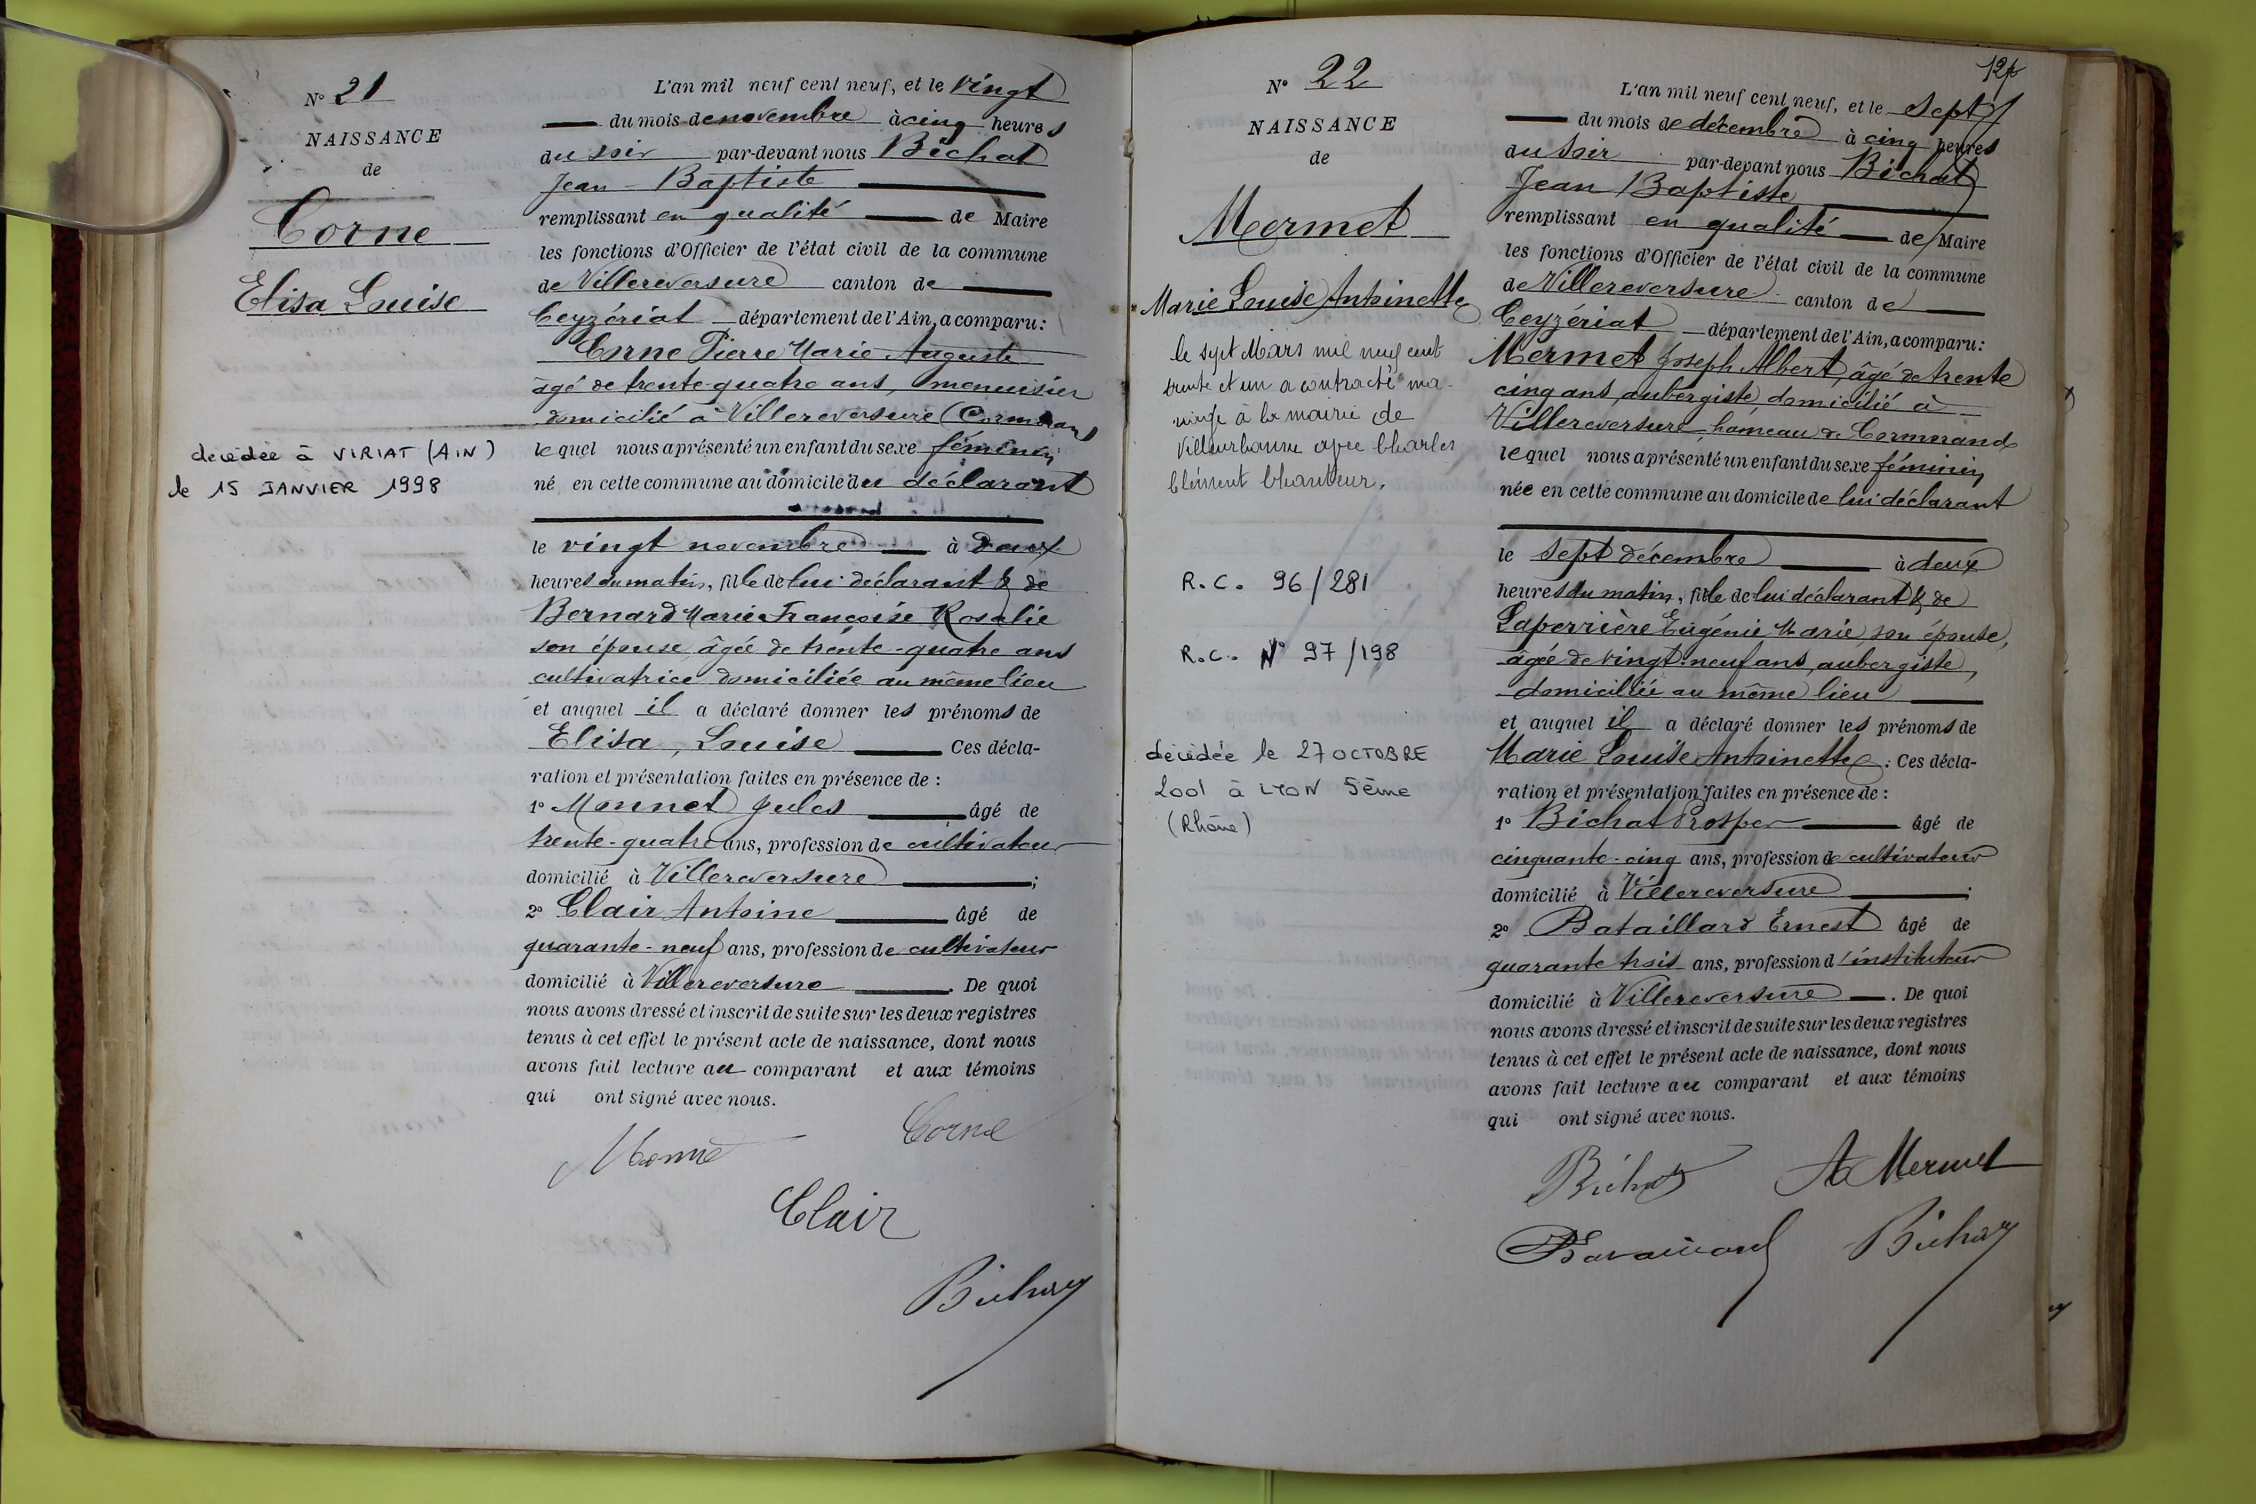 N° 21
NAISSANCE
de
Corne
Elisa Louise
décédée à VIRIAT (AIN)
le 15 JANVIER 1998
L'an mil neuf cent neuf, et le vingt
du mois de novembre à cinq heures
du soir par-devant nous Bichat
Jean-Baptiste
remplissant en qualité de Maire
les fonctions d'Officier de l'état civil de la commune
de Villereversure canton de
Ceyzériat département de l'Ain, a comparu :
Corne Pierre Marie Auguste
âgé de trente-quatre ans, menuisier
domicilié à Villereversure (Cormorand
lequel nous a présenté un enfant du sexe féminin
né en cette commune au domicile du déclarant
le vingt novembre à deux
heures du matin, fille de lui déclarant & de
Bernard Marie Françoise Rosalie
son épouse, âgée de trente-quatre ans
cultivatrice domiciliée au même lieu
et auquel il a déclaré donner les prénoms de
Elisa, Louise Ces décla-
ration et présentation faites en présence de :
1° Monnet Jules âgé de
trente-quatre ans, profession de cultivateur
domicilié à Villereversure ;
2° Clair Antoine âgé de
quarante-neuf ans, profession de cultivateur
domicilié à Villereversure . De quoi
nous avons dressé et inscrit de suite sur les deux registres
tenus à cet effet le présent acte de naissance, dont nous
avons fait lecture au comparant et aux témoins
qui ont signé avec nous.
Corne
Monnet
Clair
Bichat
12
N° 22
NAISSANCE
de
Mermet
Marie Louise Antoinette
le sept Mars mil neuf cent
trente et un a contracté ma-
riage à la mairie de
Villeurbanne avec Charles
Clément Chanteur.
R.C. 96/281
R.C. N° 97/198
décédée le 27 OCTOBRE
2001 à LYON 5ème
(Rhône)
L'an mil neuf cent neuf, et le sept
du mois de décembre à cinq heures
du soir par-devant nous Bichat
Jean Baptiste
remplissant en qualité de Maire
les fonctions d'Officier de l'état civil de la commune
de Villereversure canton de
Ceyzériat département de l'Ain, a comparu :
Mermet Joseph Albert, âgé de trente
cinq ans, aubergiste, domicilié à
Villereversure, hameau de Cormorand
lequel nous a présenté un enfant du sexe féminin
née en cette commune au domicile de lui déclarant
le sept décembre à deux
heures du matin, fille de lui déclarant & de
Laperrière Eugénie Marie, son épouse,
âgée de vingt-neuf ans, aubergiste,
domiciliée au même lieu
et auquel il a déclaré donner les prénoms de
Marie Louise Antoinette : Ces décla-
ration et présentation faites en présence de :
1° Bichat Prosper âgé de
cinquante-cinq ans, profession de cultivateur
domicilié à Villereversure ;
2° Bataillard Ernest âgé de
quarante trois ans, profession d'instituteur
domicilié à Villereversure . De quoi
nous avons dressé et inscrit de suite sur les deux registres
tenus à cet effet le présent acte de naissance, dont nous
avons fait lecture au comparant et aux témoins
qui ont signé avec nous.
Bichat A Mermet
Bataillard Bichat